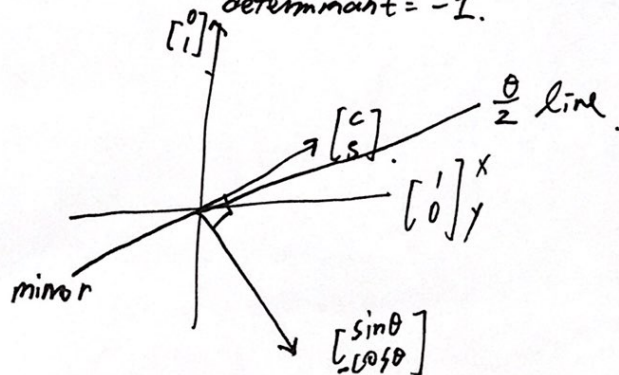 determinant = -1.
[0
1]
θ/2 line.
[c
s].
[1
0] x
y
mirror
[sinθ
-cosθ]